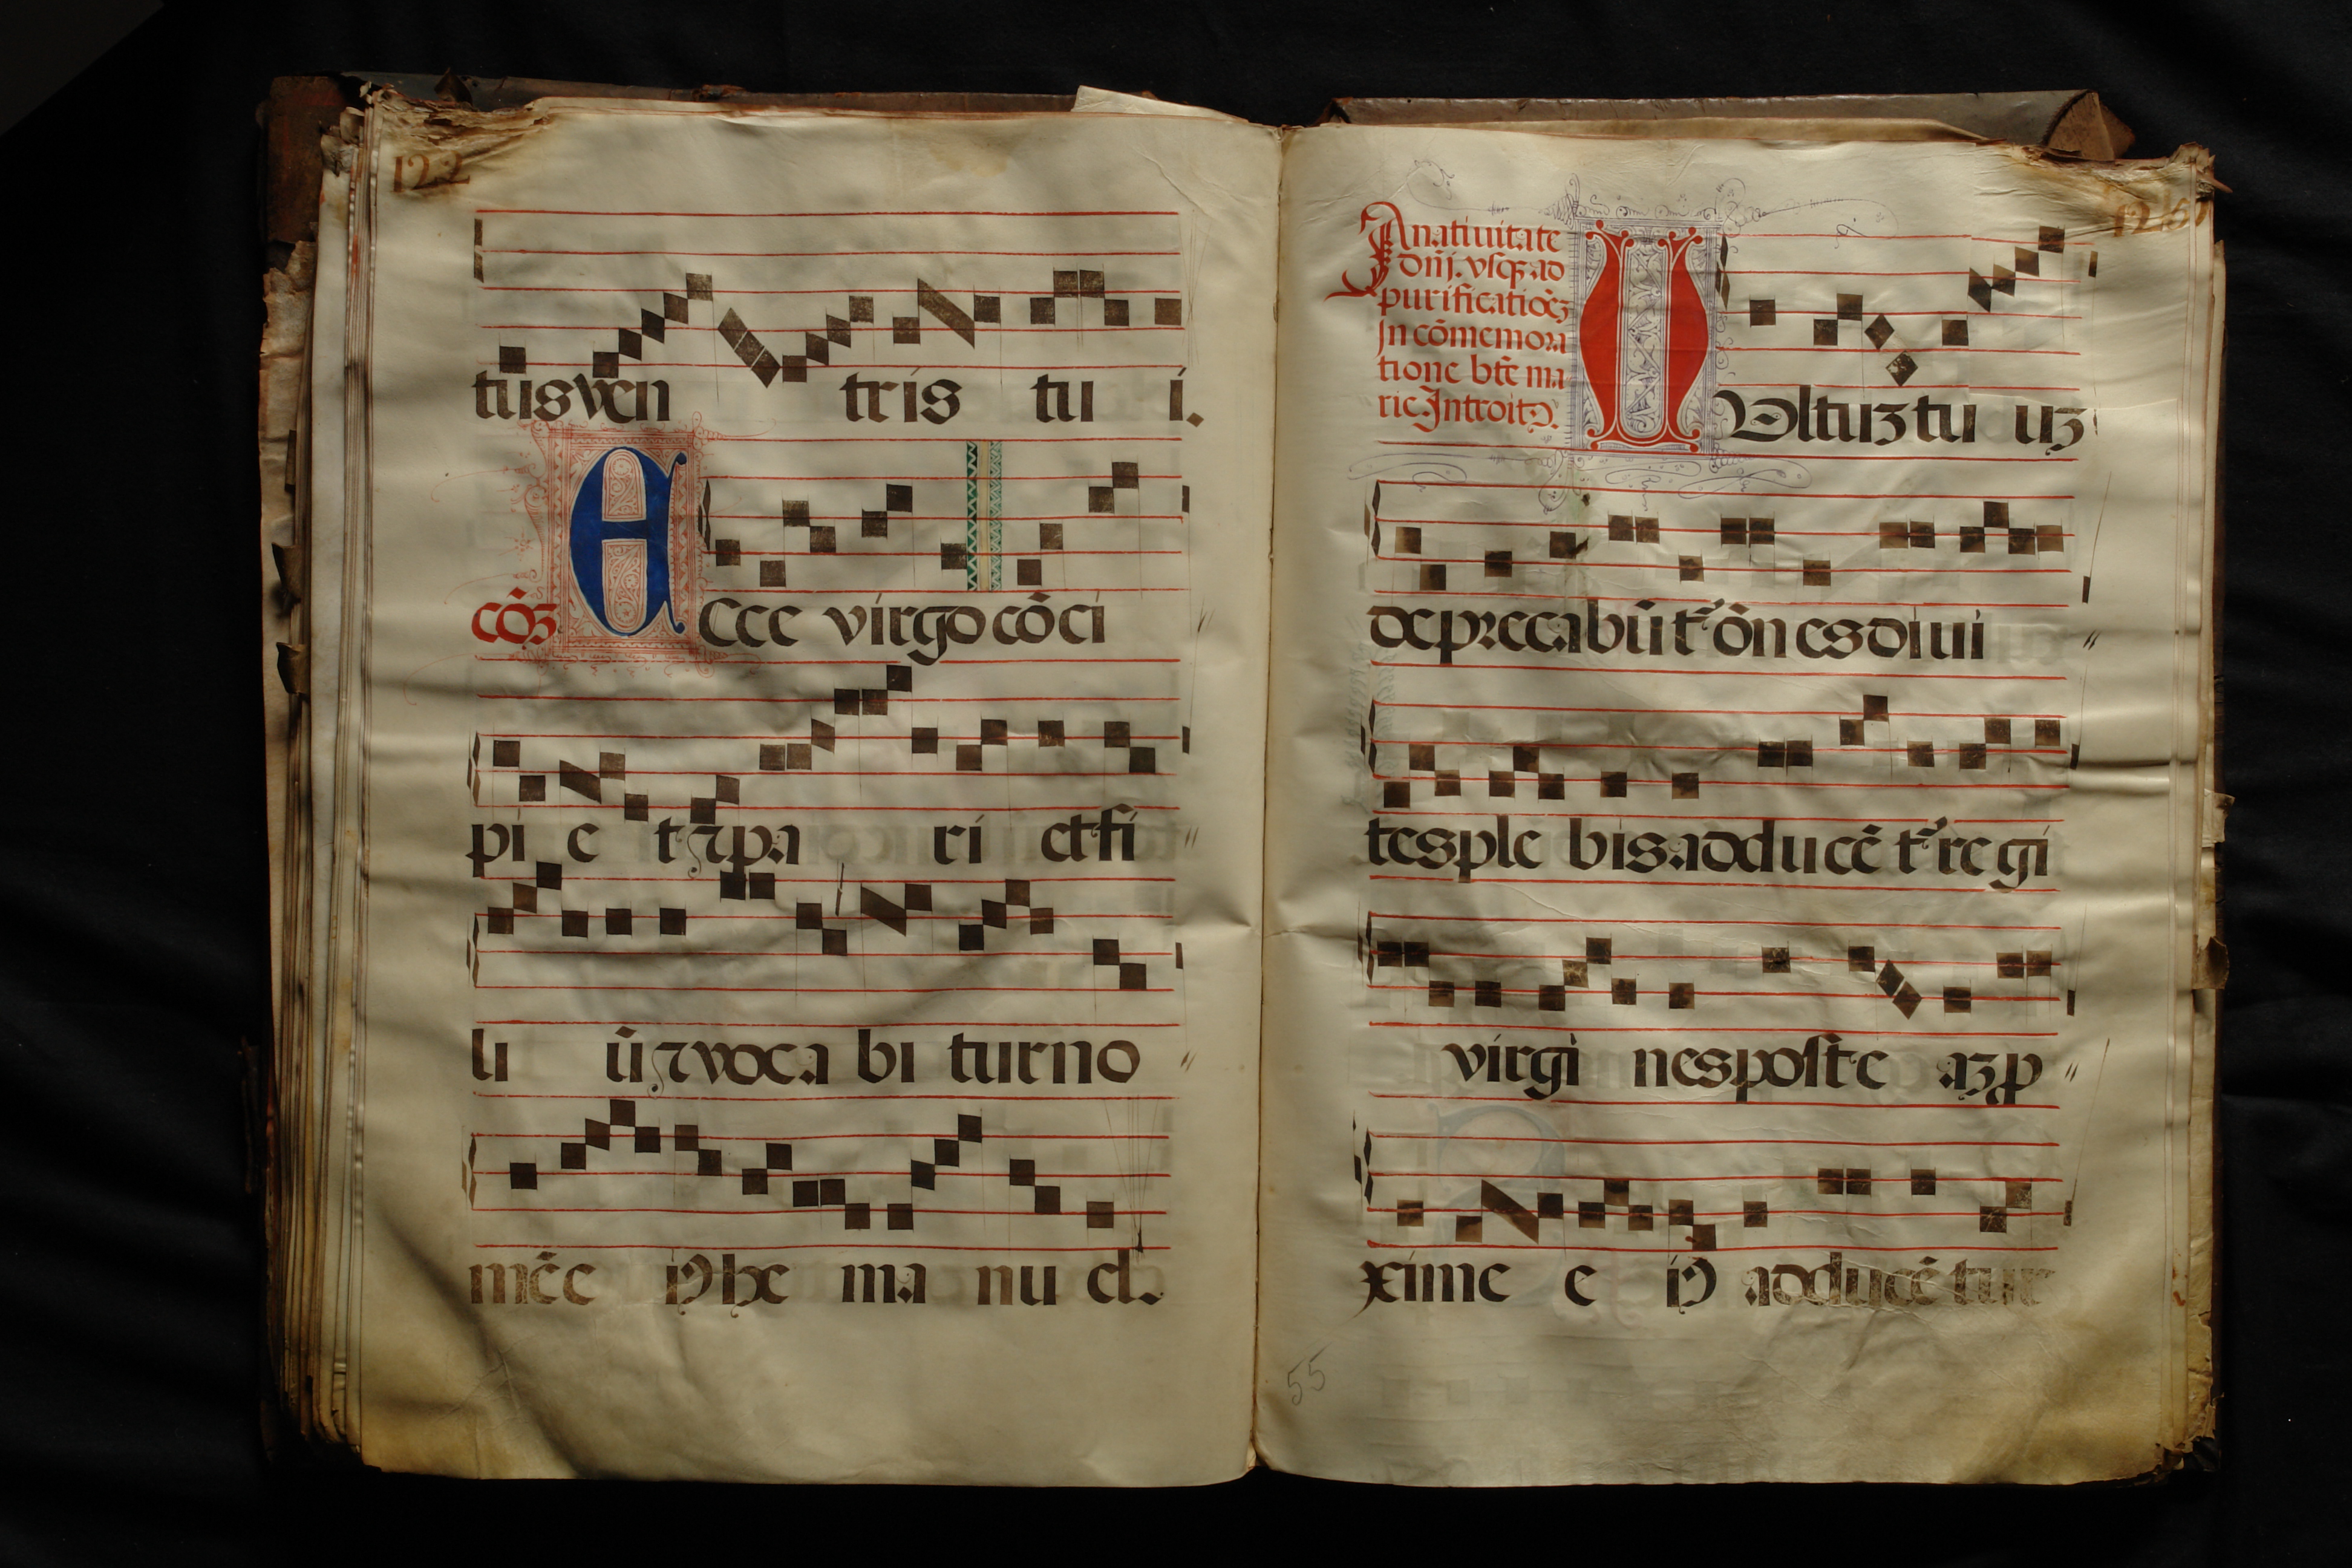 122
tus ven tris tu i.
cōʒ Ecce virgo cōci
pi e t ⁊ pa ri et fi
li ū ⁊ voca bi tur no
mē e iꝰ he ma nu el.
A natiuitate
dn̄i. vſqꝫ ad
purificatiōeʒ
In cōmemora
tione bt̄e ma
rie. Introitꝰ.
Vultuʒ tu uʒ
deprecabūt᷑ ōn es diui
tes ple bis adducē t᷑ re gi
virgi nes poſt e aʒ ꝓ
xime e iꝰ adducē tur
55